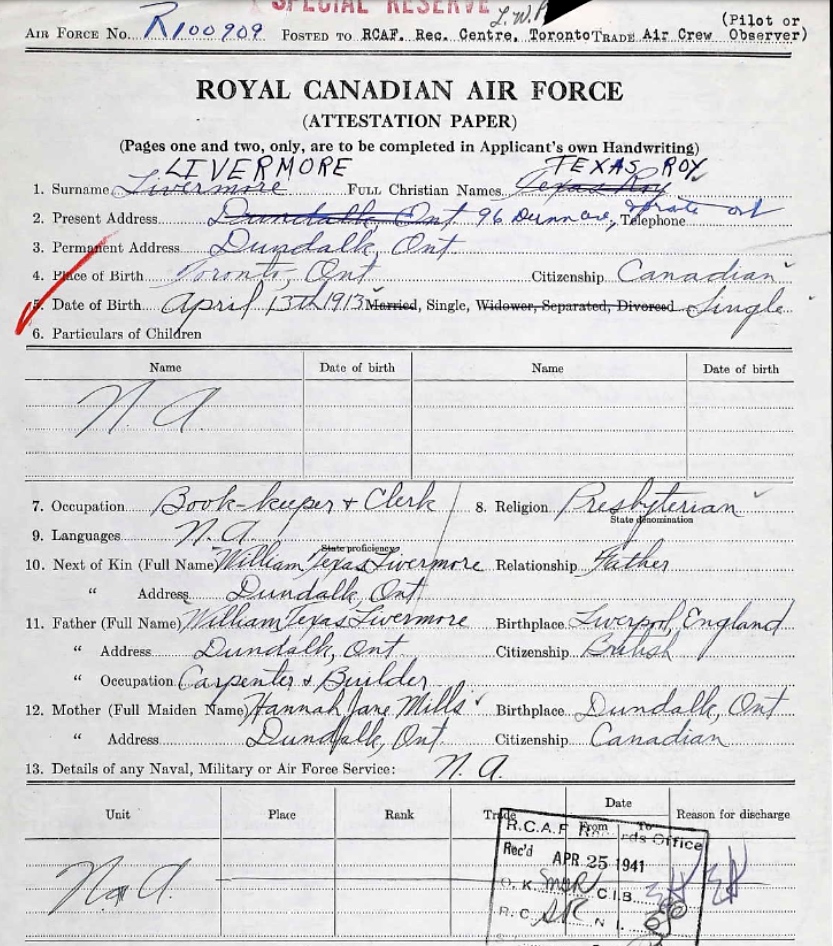 SPECIAL RESERVE
(Pilot or
AIR FORCE NO. R100909 POSTED TO RCAF. Rec. Centre, Toronto TRADE Air Crew Observer)
ROYAL CANADIAN AIR FORCE
(ATTESTATION PAPER)
(Pages one and two, only, are to be completed in Applicant's own Handwriting)
LIVERMORE TEXAS ROY
1. Surname Livermore FULL Christian Names Texas Roy
2. Present Address Dundalk, Ont 96 Dunn Ave, Telephone
3. Permanent Address Dundalk, Ont.
4. Place of Birth Toronto, Ont Citizenship Canadian
5. Date of Birth April 13th 1913 Married, Single, Widower, Separated, Divorced Single
6. Particulars of Children
Name Date of birth Name Date of birth
N. A.
7. Occupation Book-keeper & Clerk 8. Religion Presbyterian
State denomination
9. Languages N. A.
State proficiency
10. Next of Kin (Full Name) William Texas Livermore Relationship Father
" Address Dundalk, Ont.
11. Father (Full Name) William Texas Livermore Birthplace Liverpool, England
" Address Dundalk, Ont. Citizenship British
" Occupation Carpenter & Builder
12. Mother (Full Maiden Name) Hannah Jane Mills Birthplace Dundalk, Ont
" Address Dundalk, Ont. Citizenship Canadian
13. Details of any Naval, Military or Air Force Service: N. A.
Unit Place Rank Trade Date Reason for discharge
From To
N. A.
R.C.A.F. Records Office
Rec'd APR 25 1941
O. K. C.I.B.
R. C. N. I.